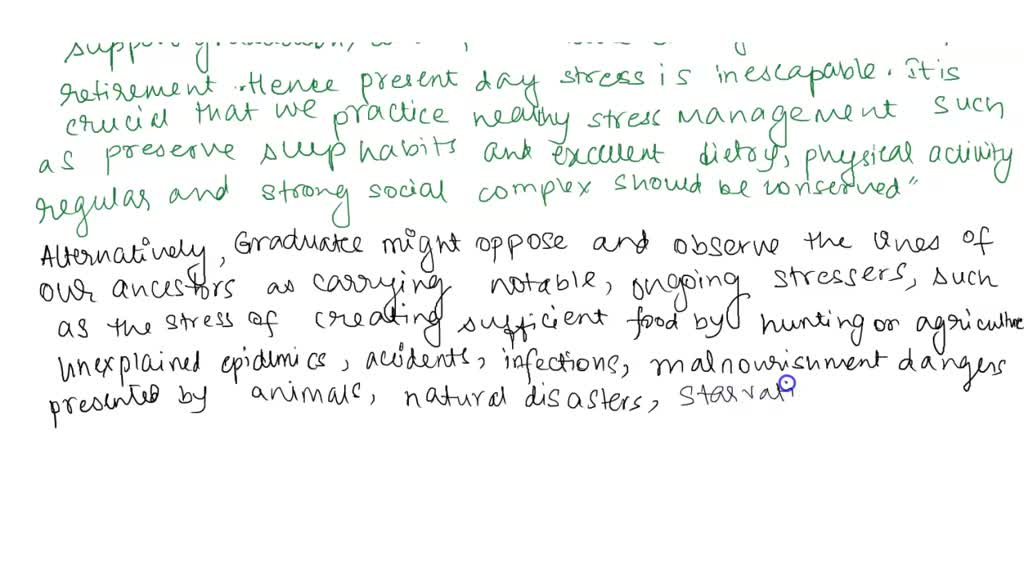 retirement. Hence present day stress is inescapable. It is
crucial that we practice healthy stress management such
as preserve sleep habits and excellent dietry, physical activity
regular and strong social complex should be conserved"
Alternatively, Graduate might oppose and observe the lines of
our ancestors as carrying notable, ongoing stressers, such
as the stress of creating sufficient food by hunting or agriculture
unexplained epidemics, accidents, infections, malnourishment dangers
presented by animals, natural disasters, starvati